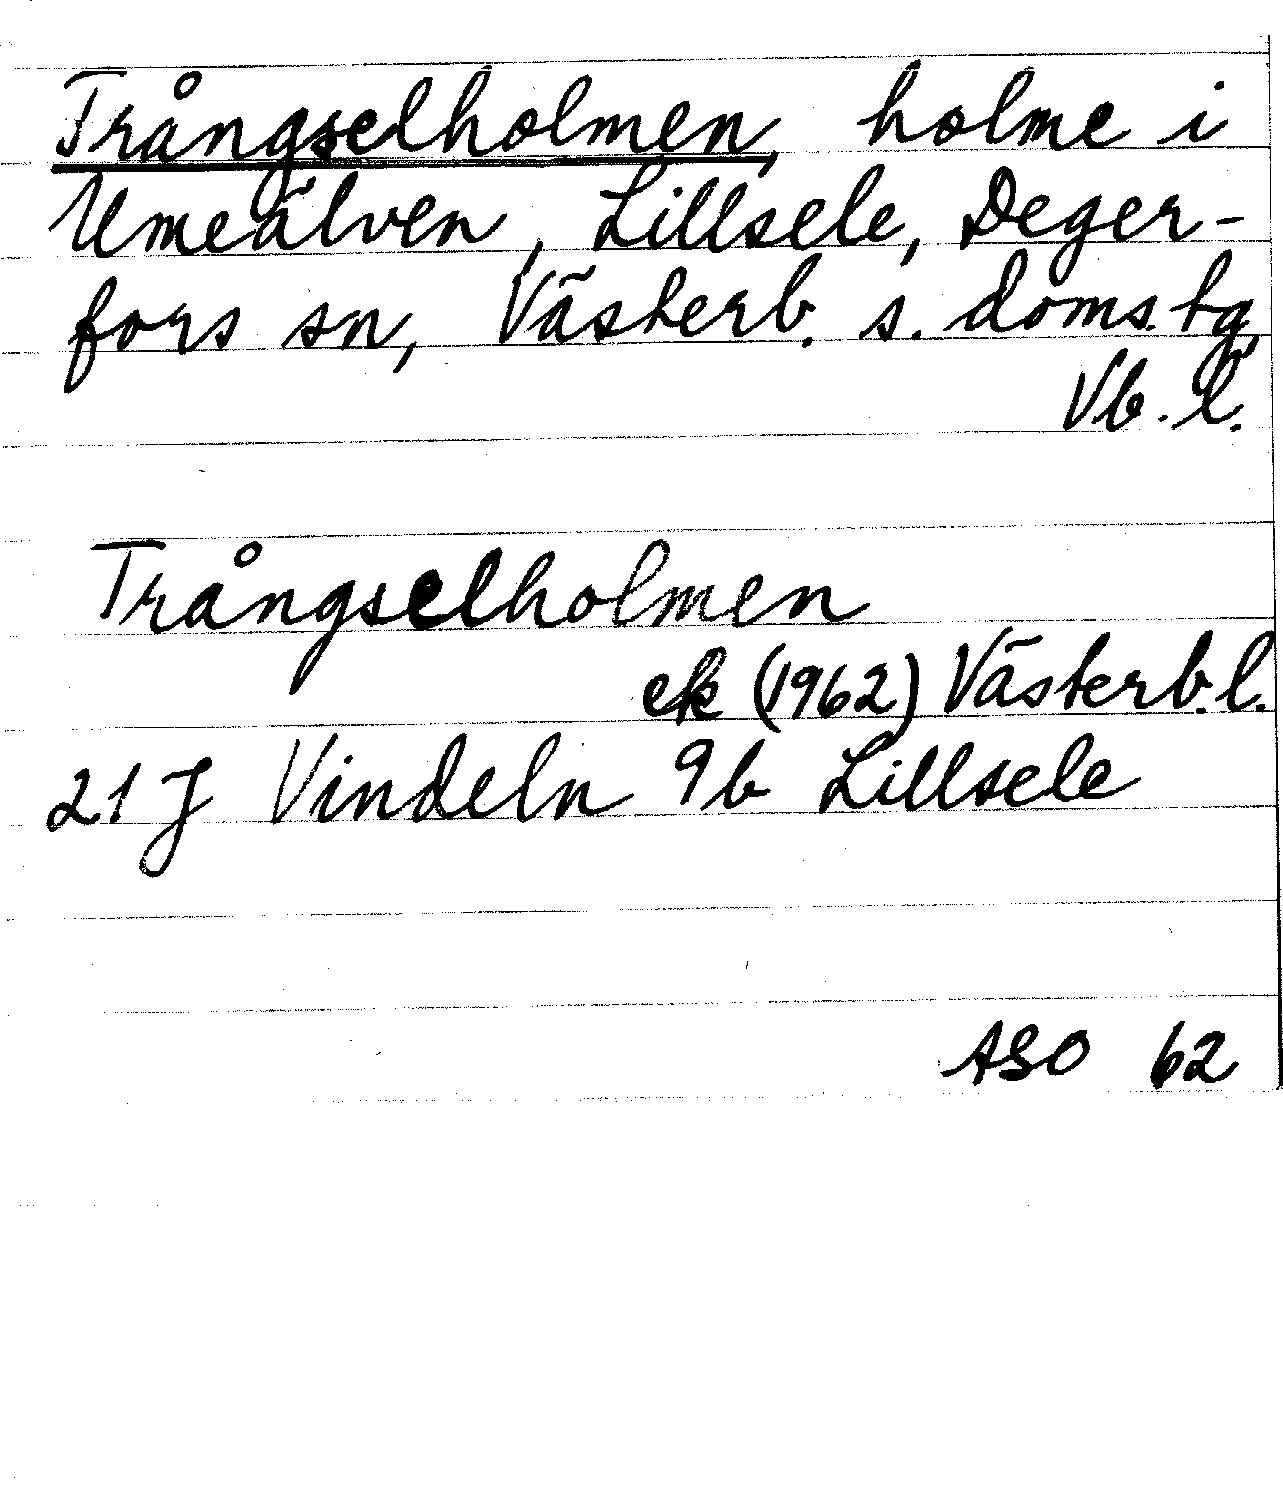 Trångselholmen, holme i
Umeälven, Lillsele, Deger-
fors sn, Västerb. s. doms. tg,
Vb. l.
Trångselholmen
ek (1962) Västerb. l.
21 J Vindeln 9b Lillsele
ASO 62